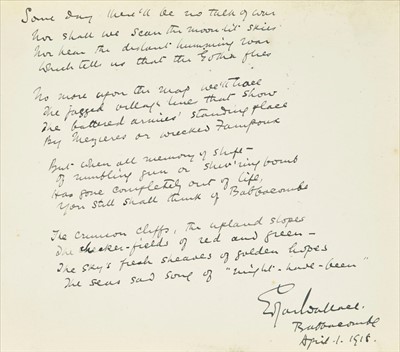 Some day there'll be no talk of war
Nor shall we scan the moonlit skies
Nor hear the distant humming war
Which tell us that the Gotha flies
No more upon the map we'll trace
The jagged or length line that show
The battered armies' standing place
By Mezieres or wrecked Fampoux
But when all memory of strife –
Of rumbling gun or shiv'ring bomb
Has gone completely out of life,
You still shall think of Babbacombe
The crimson cliffs, the upland slopes
The checker-fields of red and green –
The gay's fresh sheaves of golden hopes
The sea's sad song of "might-have-been"
Edgar Wallace.
Babbacombe
April. 1. 1918.